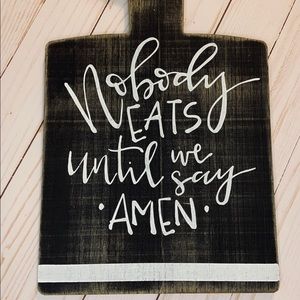 Nobody
EATS
until we
say
• AMEN •